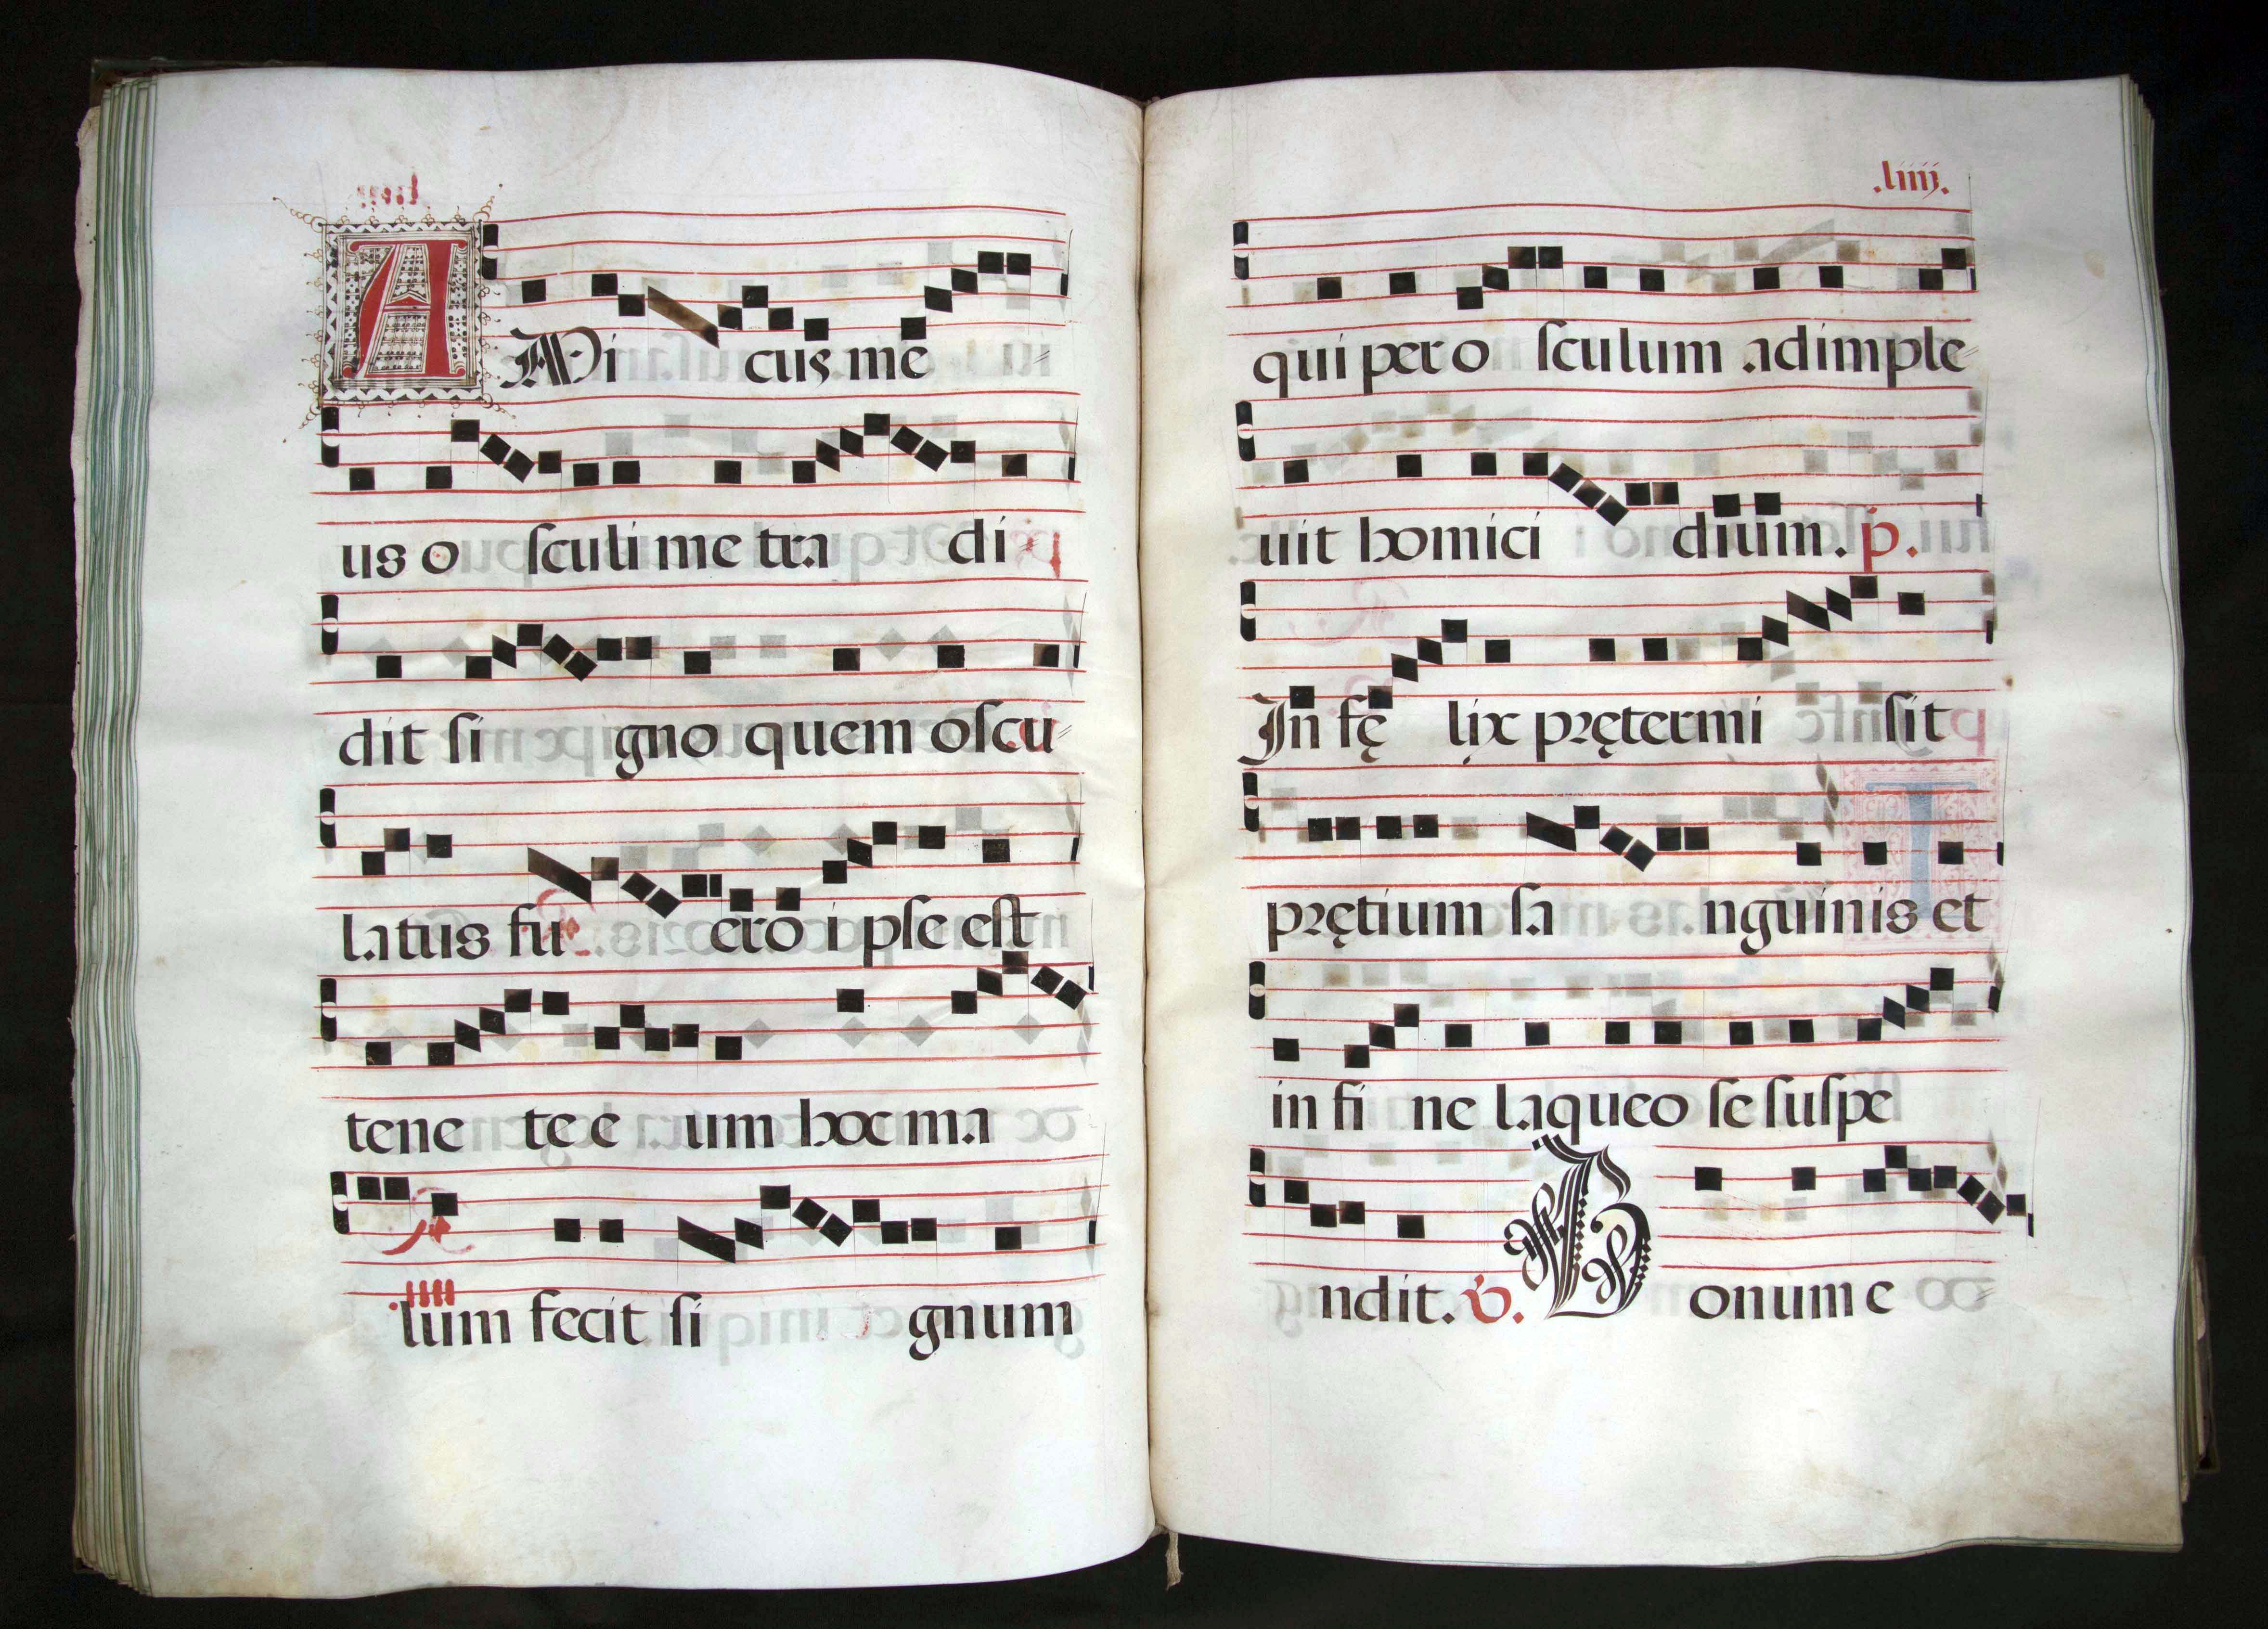 AMi cus me
us o sculi me tra di
dit si gno quem oscu-
latus fu ero ipse est
tene te e um hoc ma
lum fecit si gnum
.liiij.
qui per o sculum adimple-
uit homici dium. p.
In fę lix prętermi sit
prętium sa nguinis et
in fi ne laqueo se suspe
ndit. v. B onum e